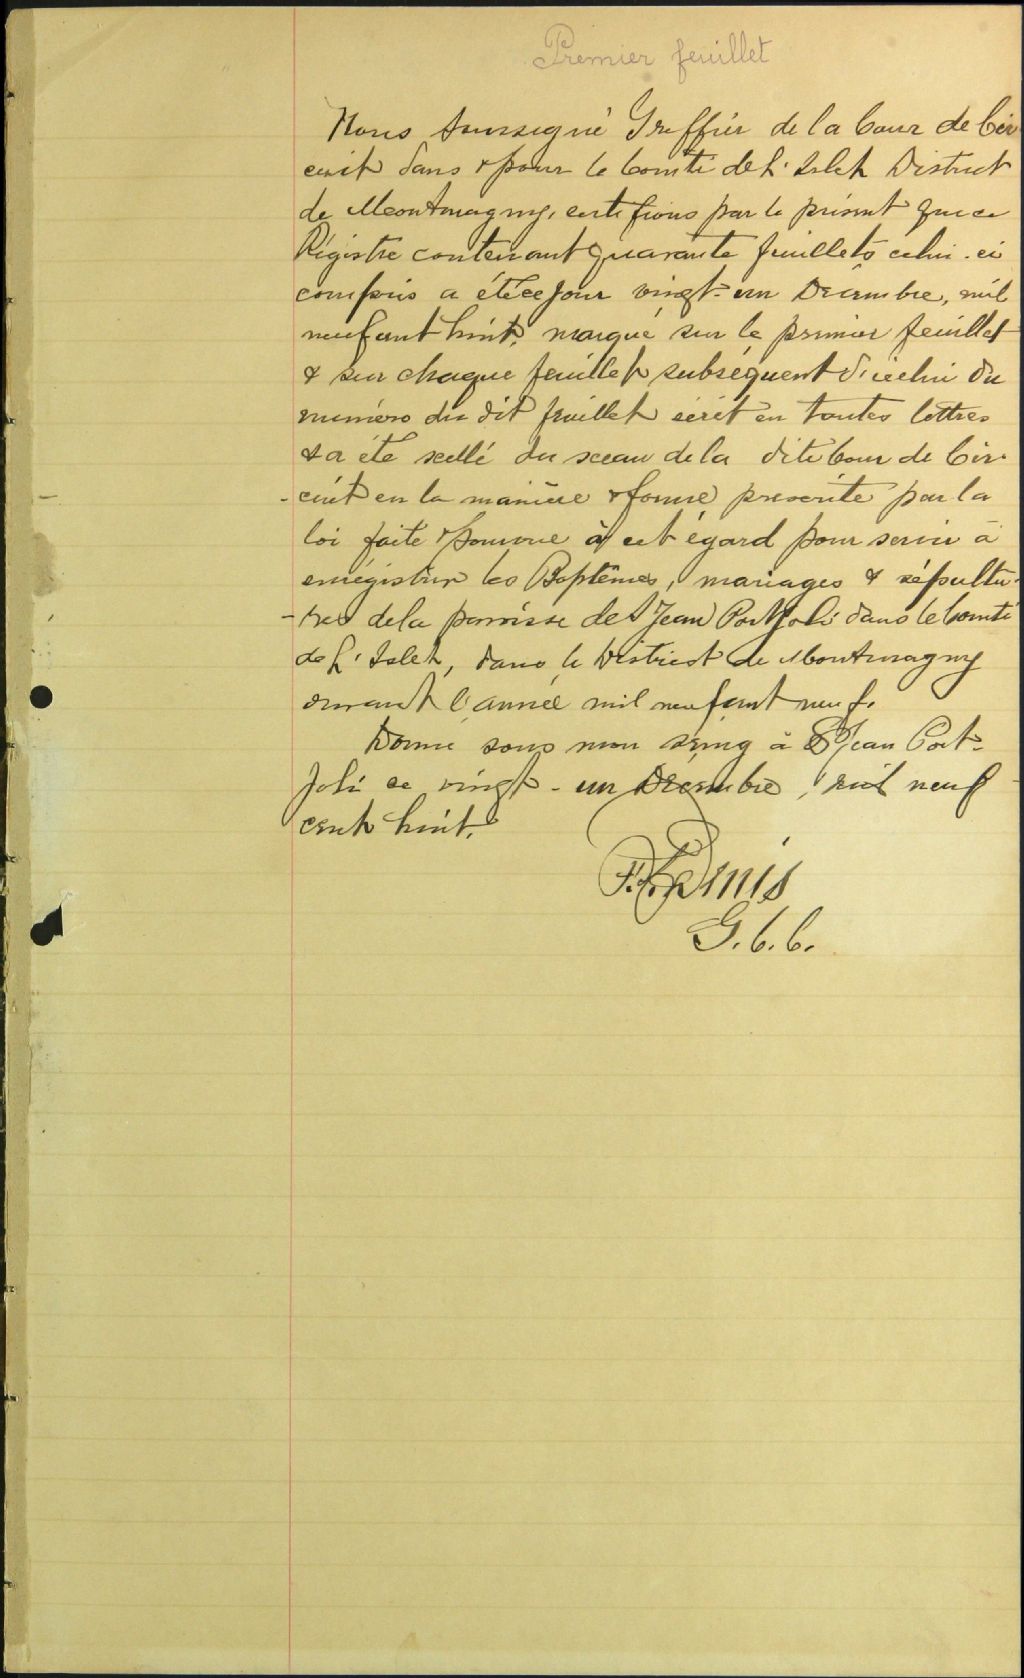 Premier feuillet
Nous soussigné Greffier de la Cour de Cir
cuit dans & pour le Comté de L'Islet District
de Montmagny, certifions par le présent que ce
Régistre contenant quarante feuillets celui-ci
compris a été ce jour vingt-un Décembre, mil
neuf cent huit, marqué sur le premier feuillet
& sur chaque feuillet subséquent d'icelui du
numéro du dit feuillet écrit en toutes lettres
& a été scellé du sceau de la dite Cour de Cir-
-cuit en la manière & forme prescrite par la
loi faite & pourvue à cet égard pour servir à
enrégistrer les Baptêmes, mariages & sépultu-
-res de la paroisse de St Jean Port Joli dans le Comté
de L'Islet, dans le District de Montmagny
durant l'année mil neuf cent neuf.
Donné sous mon seing à St Jean Port-
Joli ce vingt-un Décembre, mil neuf
cent huit.
G.C.C.